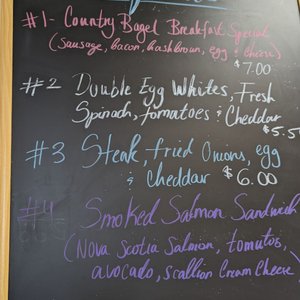 #1- Country Bagel Breakfast Special
(Sausage, bacon, hashbrown, egg & cheese)
$7.00
#2 Double Egg Whites, Fresh
Spinach, tomatoes & Cheddar
$5.5
#3 Steak, fried Onions, egg
& cheddar $6.00
#4 Smoked Salmon Sandwich
(Nova Scotia Salmon, tomatos,
avocado, scallion Cream Cheese)